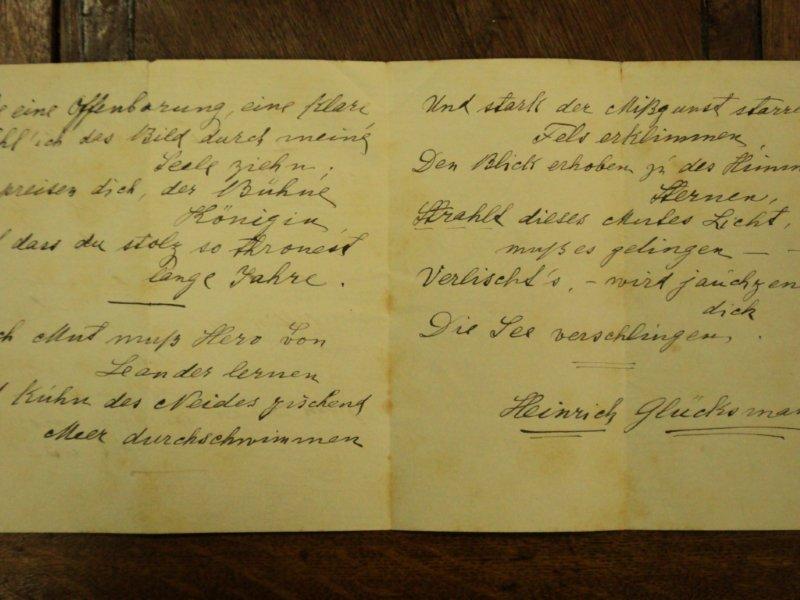 eine Offenbarung, eine klare,
ich das Bild durch meine
Seele ziehn,
preisen dich, der Bühne
Königin,
dass du stolz so thronest
lange Jahre.
Mut muß Hero von
Leander lernen
Kühn des Neides zischend
Meer durchschwimmen
Und stark der Mißgunst starre
Fels erklimmen,
Den Blick erhoben zu des Himm
Sternen,
Strahlt dieses Mutes Licht,
muß es gelingen —
Verlischt's, – wird jauchzen
dich
Die See verschlingen.
Heinrich Glücksma